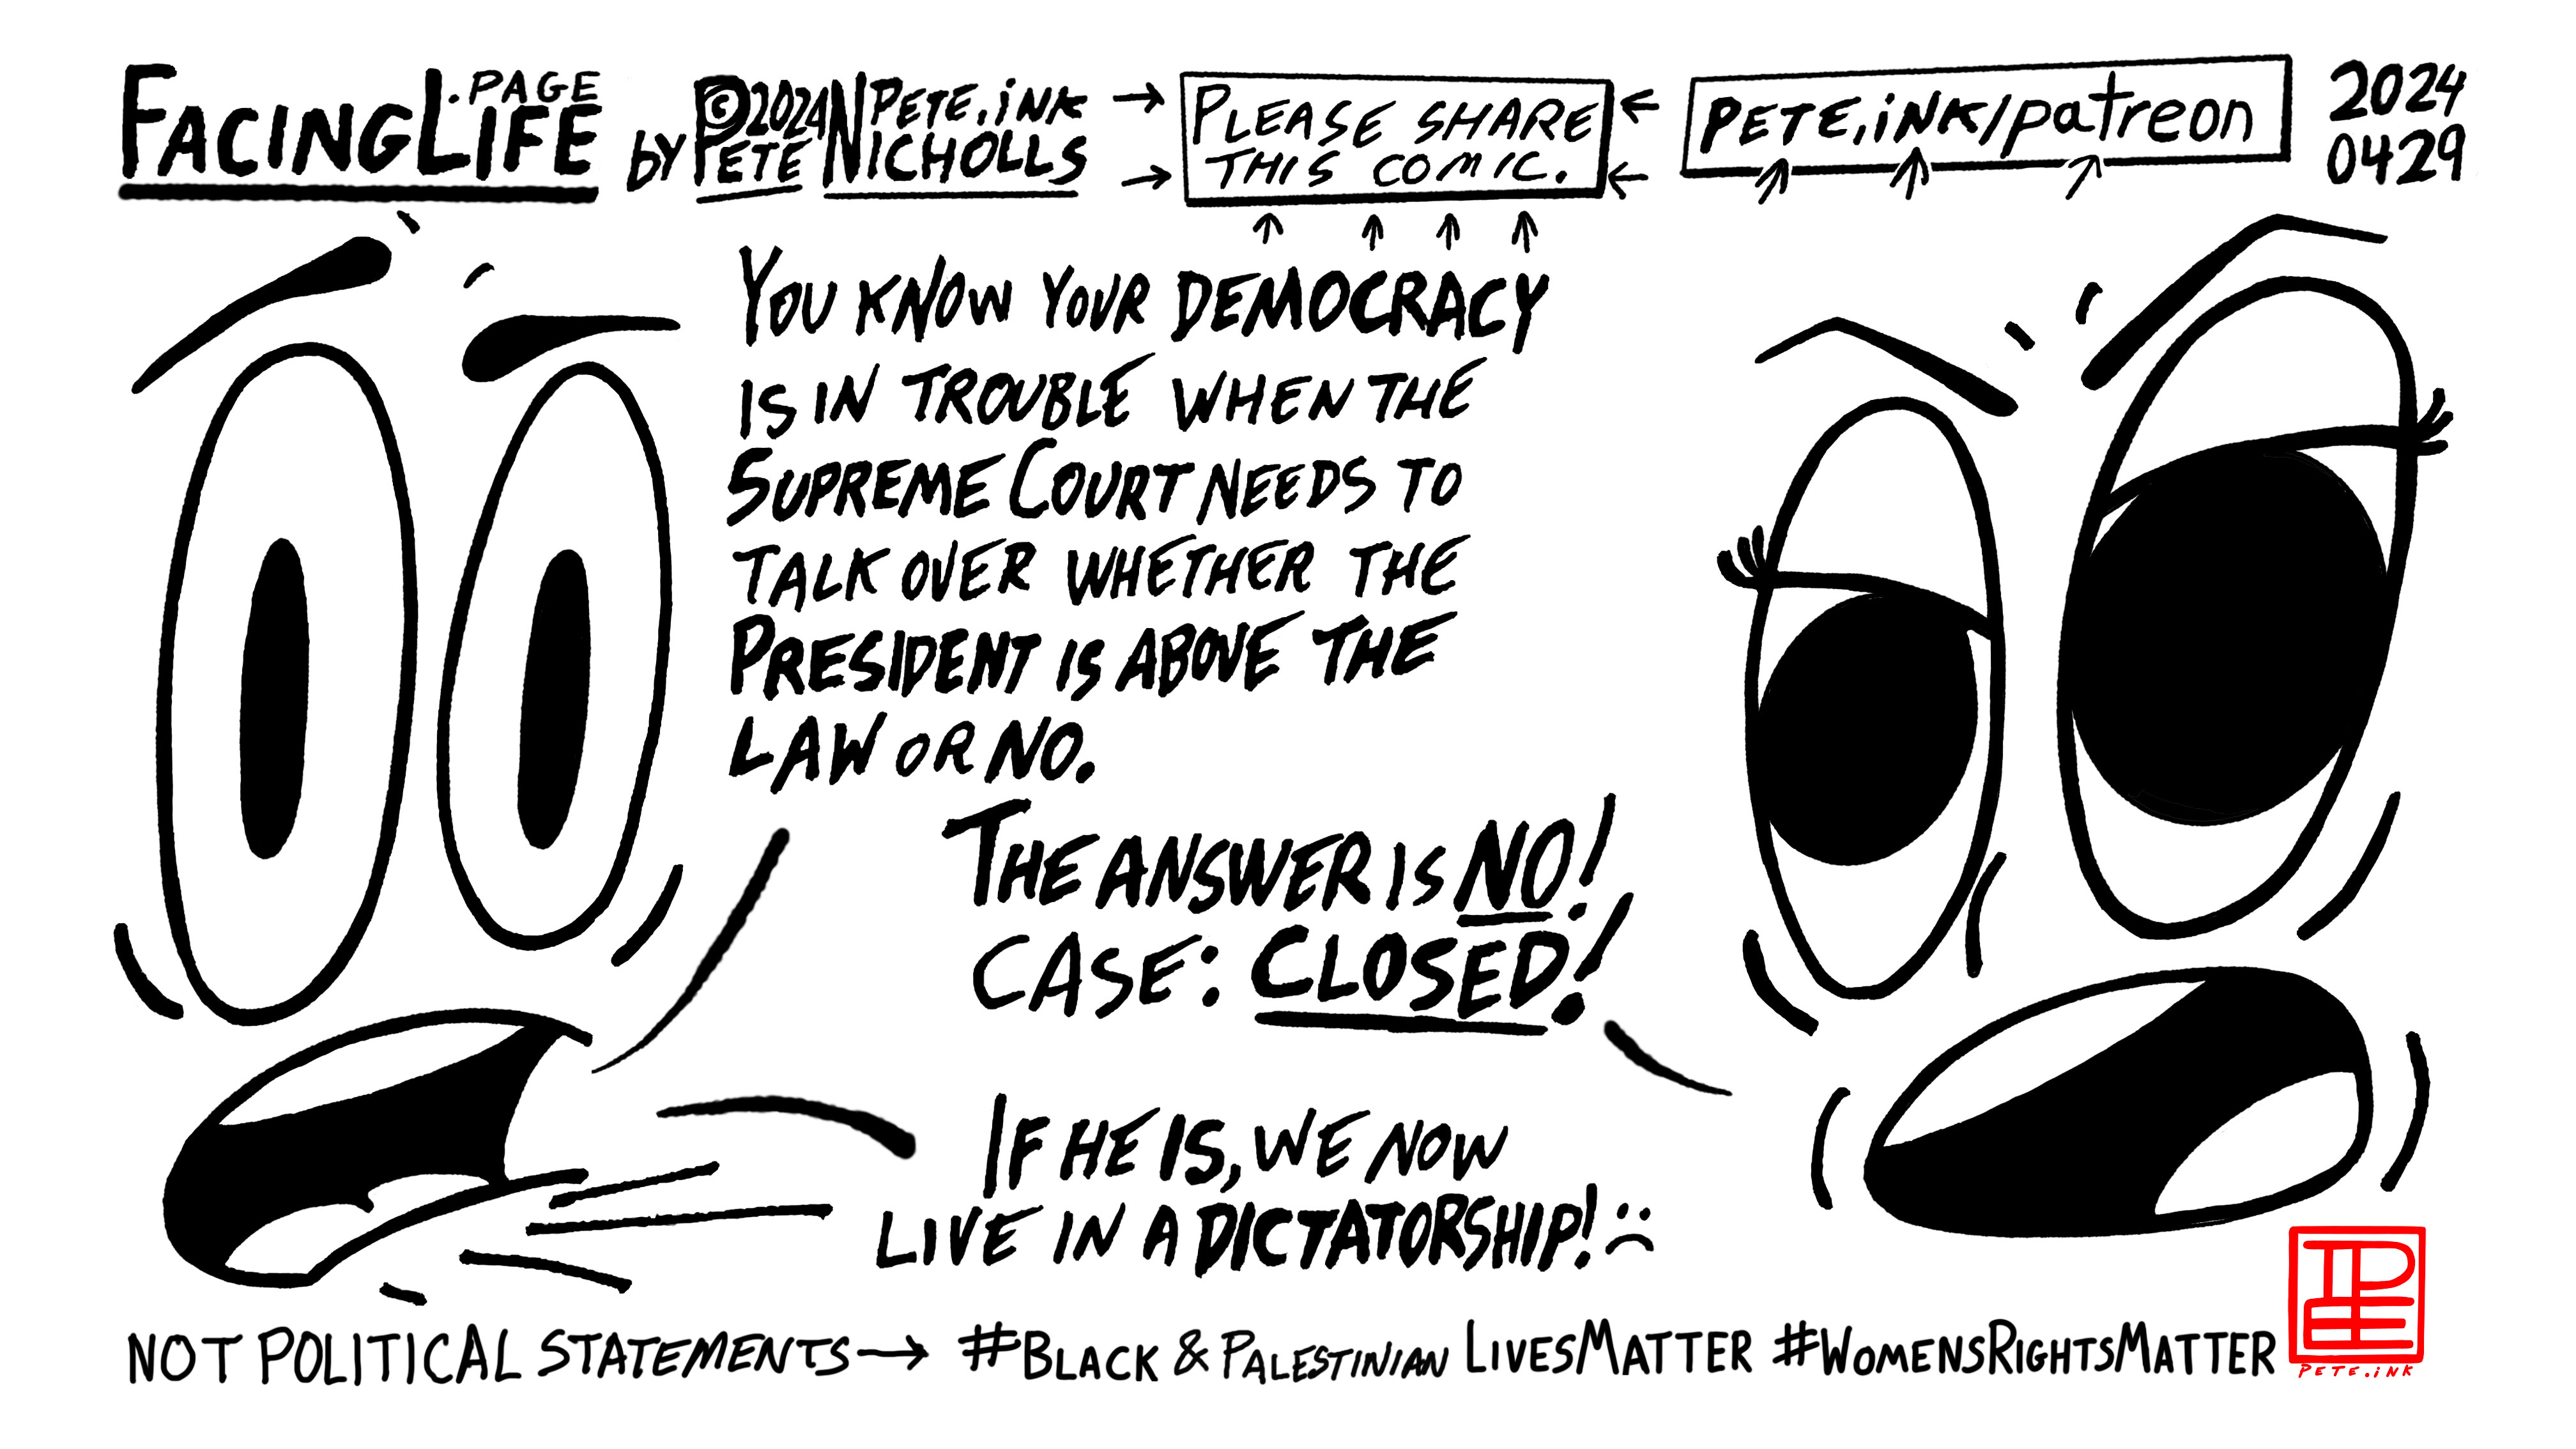 FACINGLIFE.PAGE
by ©2024 PETE.iNK
PETE NICHOLLS
→ PLEASE SHARE ←
→ THIS COMIC. ←
PETE.iNK/patreon
2024
0429
YOU KNOW YOUR DEMOCRACY
IS IN TROUBLE WHEN THE
SUPREME COURT NEEDS TO
TALK OVER WHETHER THE
PRESIDENT IS ABOVE THE
LAW OR NO.
THE ANSWER IS NO!
CASE: CLOSED!
IF HE IS, WE NOW
LIVE IN A DICTATORSHIP! :(
NOT POLITICAL STATEMENTS → #BLACK & PALESTINIAN LIVESMATTER #WOMENSRIGHTSMATTER
PETE
PETE.iNK